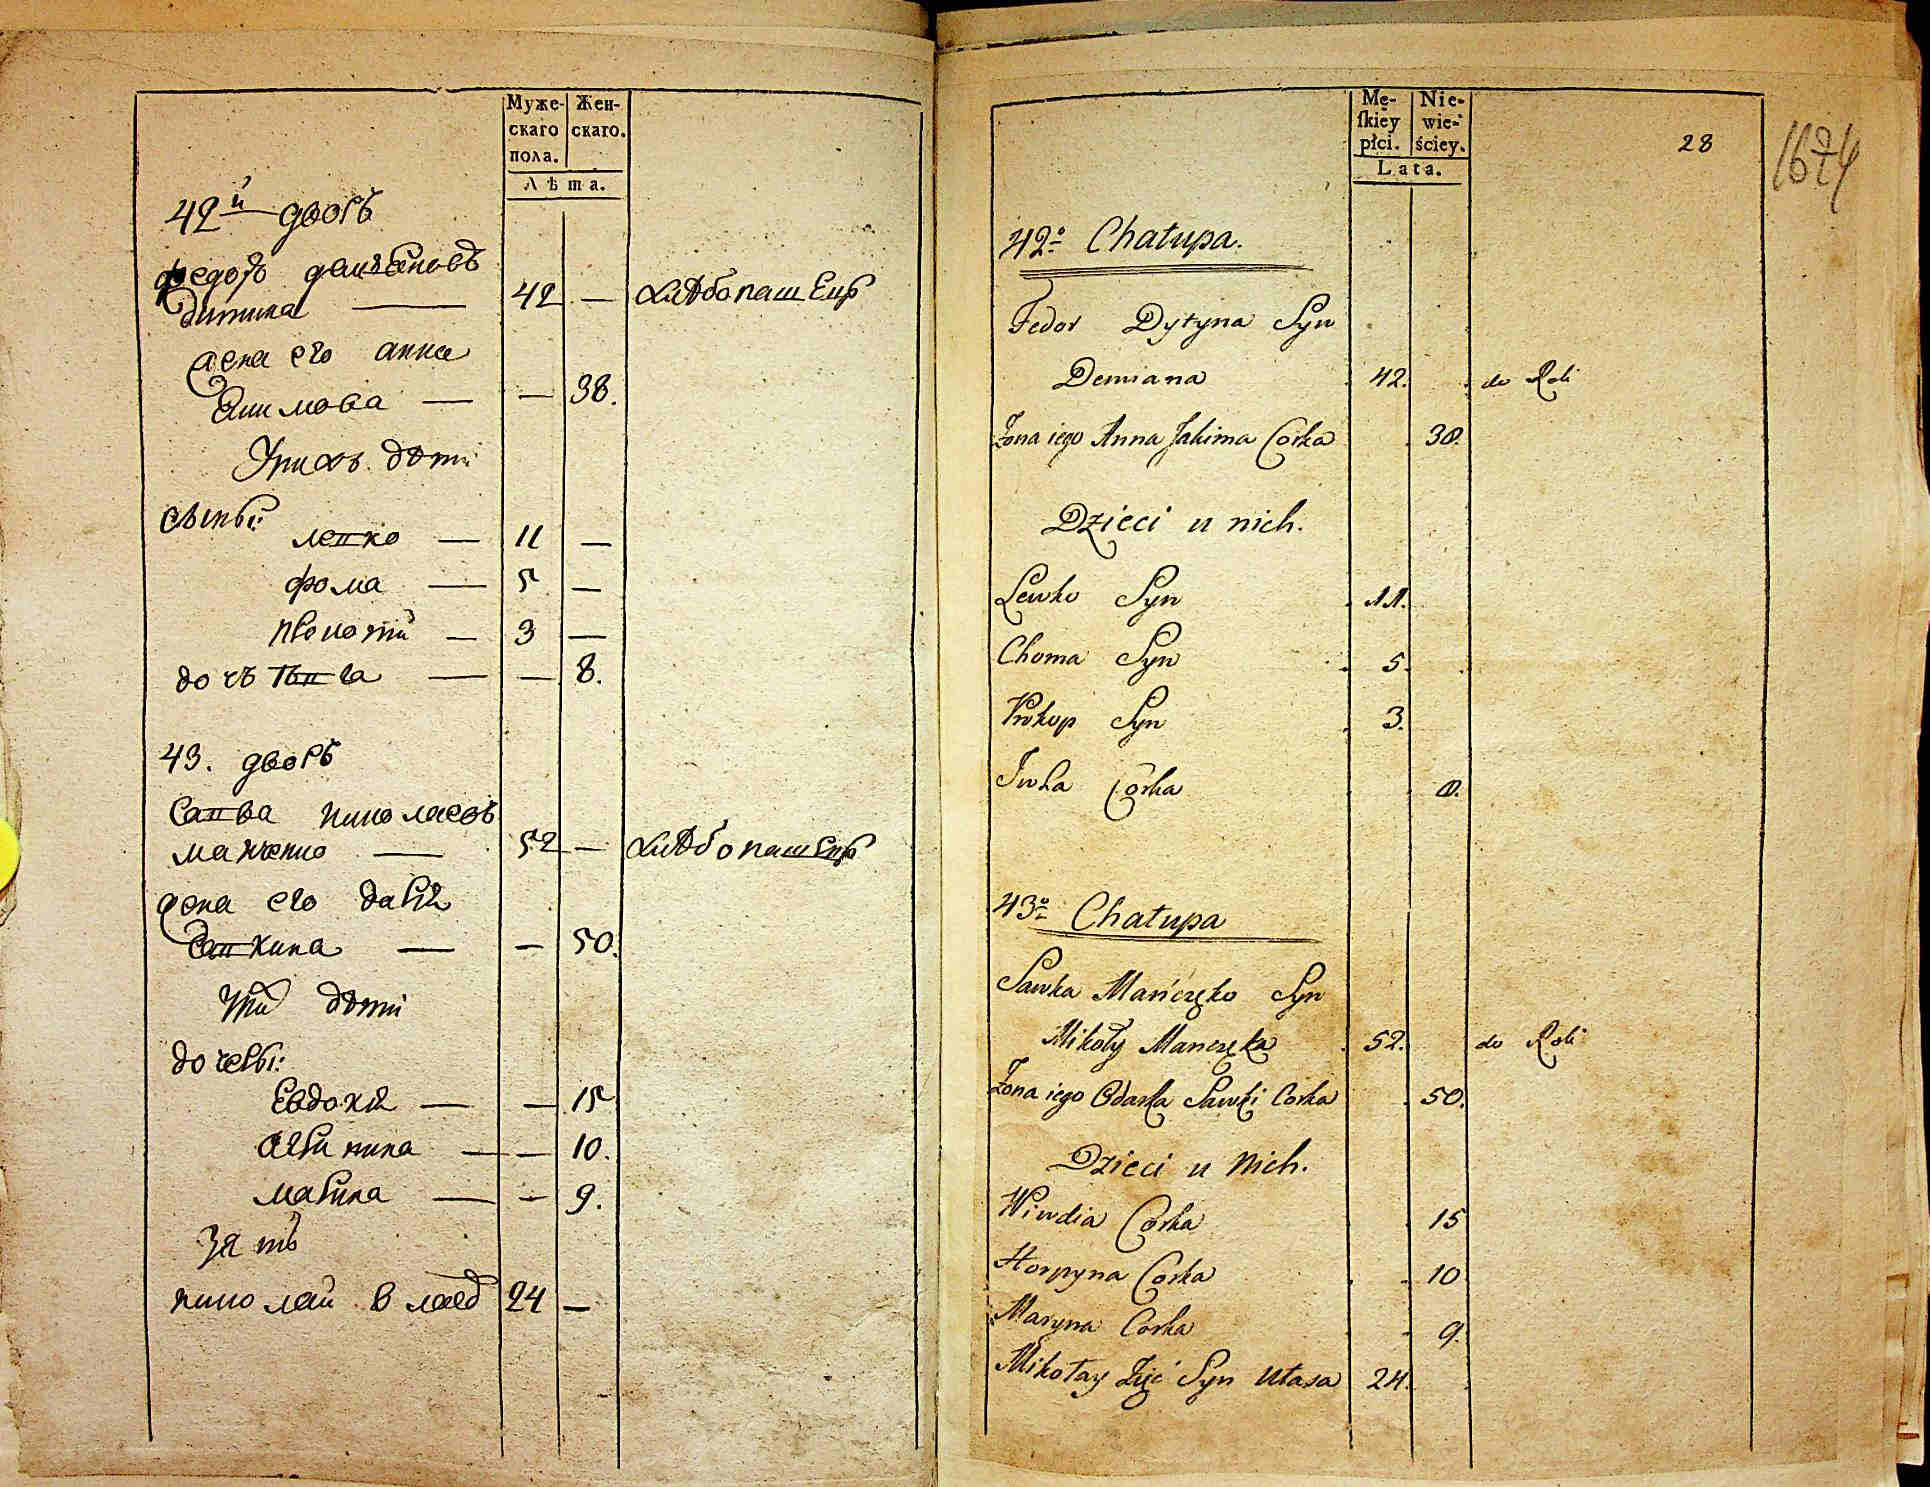 Муже-
скаго
пола.
Жен-
скаго.
Лѣта.
42й дворъ
Федоръ демьяновъ
дитина — 42 — хлѣбопашецъ
жена его анна
Якимова — — 38.
У нихъ дѣти
сыны:
левко — 11 —
фома — 5 —
прокопий — 3 —
дочь ивга — — 8.
43. дворъ
Савва николаевъ
манченко — 52 — хлѣбопашецъ
жена его дария
савкина — — 50.
их дѣти
дочеры:
Евдокия — — 15
агрипина — — 10.
марина — — 9.
Зять
николай влас 24 —
Mę-
ſkiey
płci.
Nie-
wie-
ściey.
Lata.
28
1674
42o Chałupa.
Fedor Dytyna Syn
Demiana 42. do Roli
Żona iego Anna Jakima Corka 38.
Dzieci u nich.
Lewko Syn 11.
Choma Syn 5.
Prokop Syn 3.
Iwha Córka 8.
43o Chałupa
Sawka Mańczęko Syn
Mikoły Manczęka 52. do Roli
Żona iego Odarka Sawki Corka 50.
Dzieci u Nich.
Wiwdia Córka 15
Horpyna Corka 10
Maryna Corka 9.
Mikołay Zięć Syn Ułasa 24.